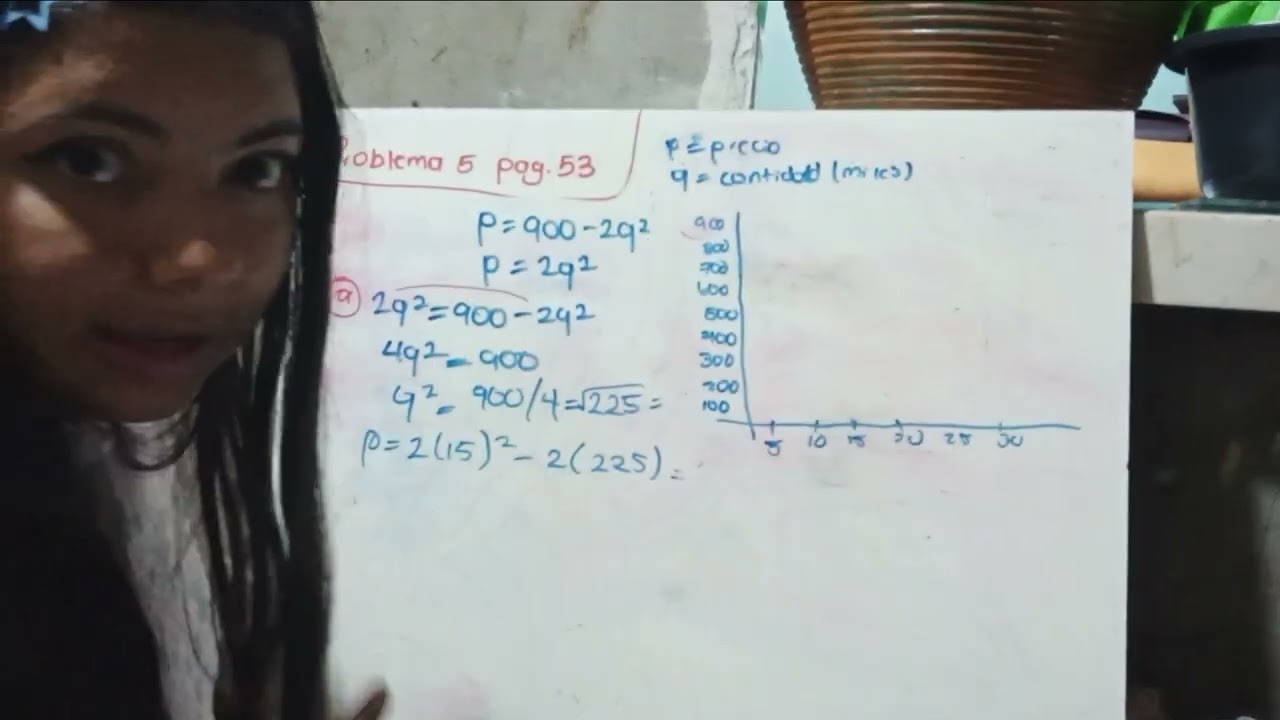 Problema 5 pag. 53
p = precio
q = cantidad (miles)
P = 900 - 2q²
P = 2q²
a
2q² = 900 - 2q²
4q² = 900
q² = 900/4 = √225 =
P = 2(15)² - 2(225) =
900
800
700
600
500
400
300
200
100
5 10 15 20 25 30